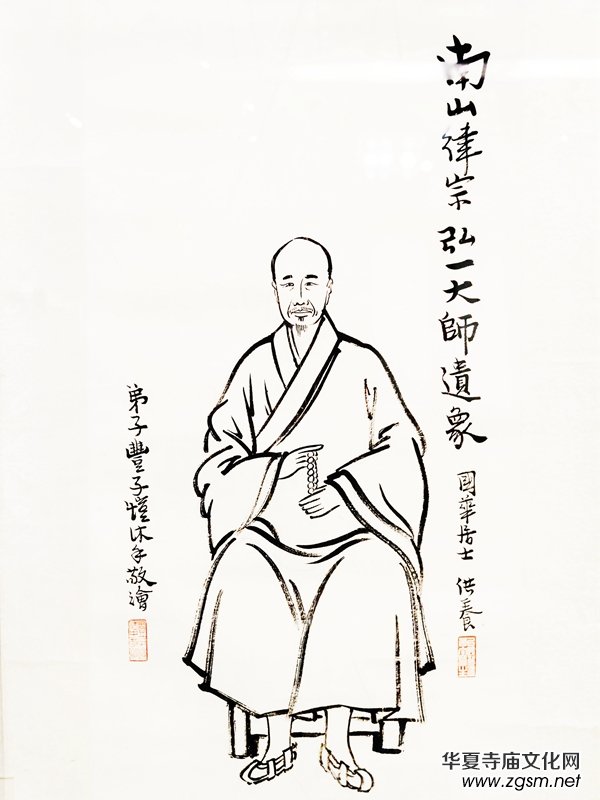 南山律宗弘一大師遺象
國華居士 供養
弟子豐子愷沐手敬繪
华夏寺庙文化网
www.zgsm.net